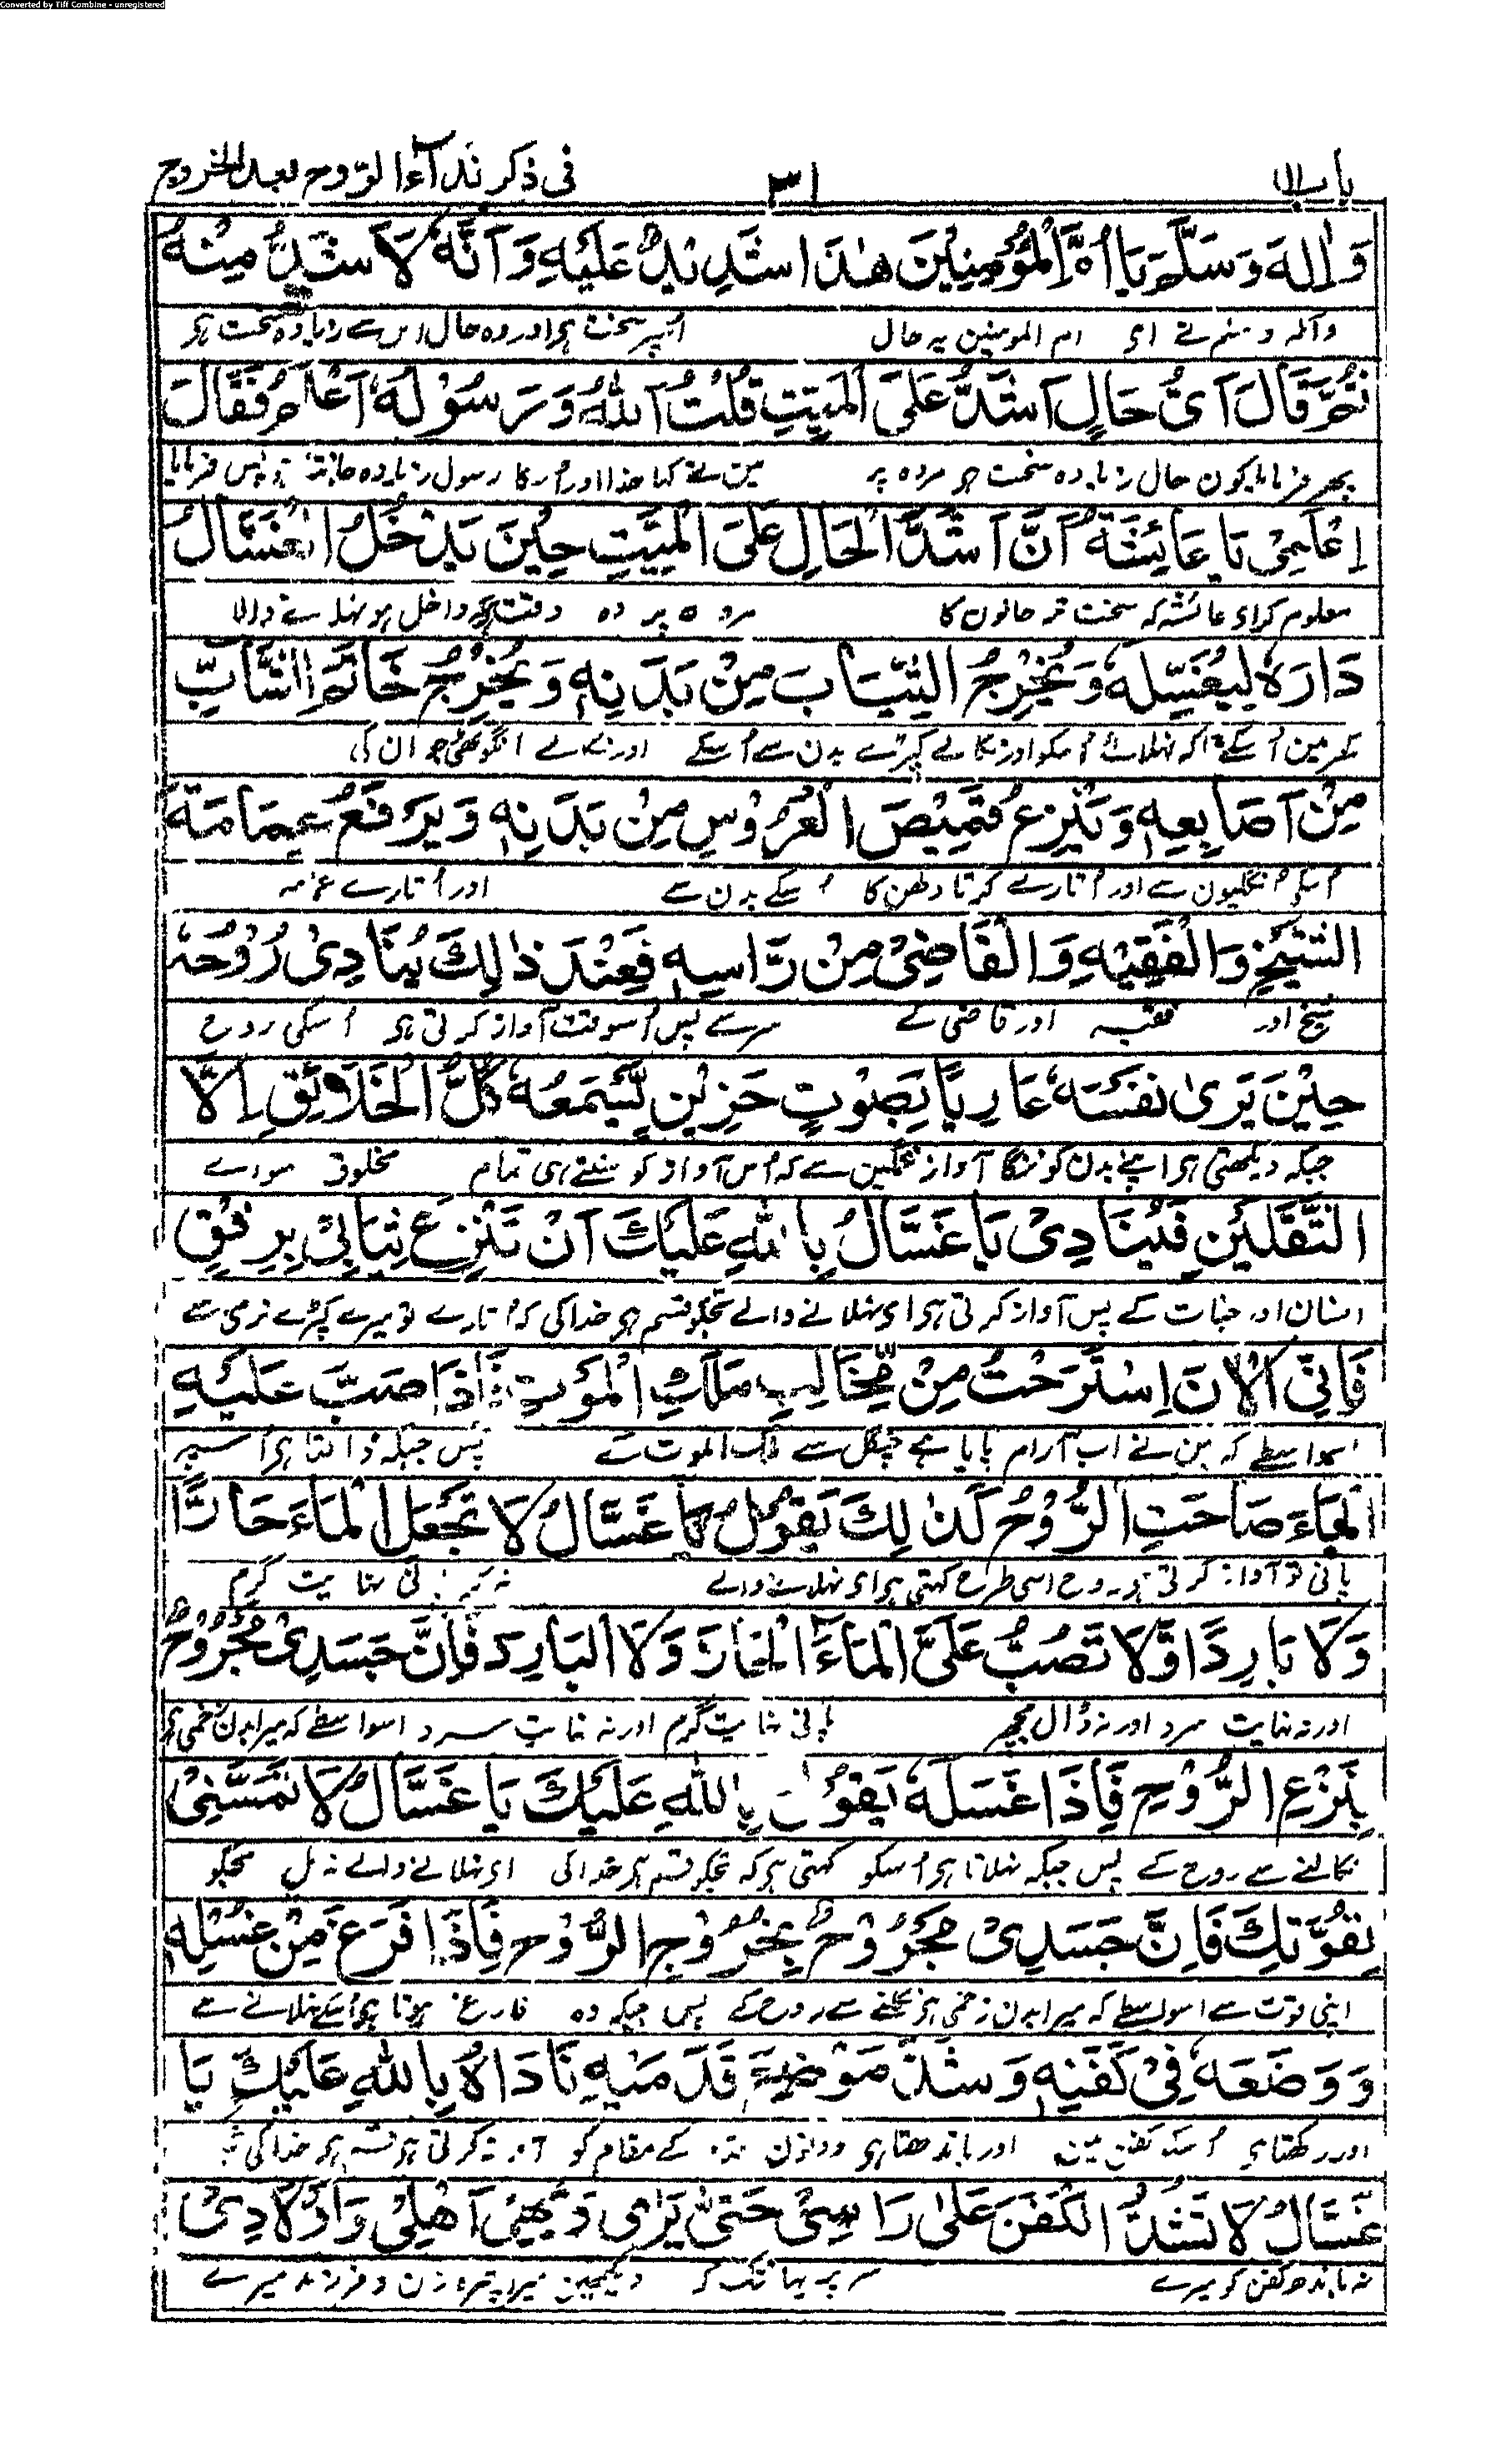 Converted by Tiff Combine - unregistered
باب ۱۱ ۳۱ فی ذکر نداء الرّوح بعد الخروج
وَاٰلِهٖ وَسَلَّمَ يَا اُمَّ الْمُؤْمِنِيْنَ هٰذَا اشَدِيْدٌ عَلَيْهِ وَاَنَّهٗ لَاَشَدُّ مِنْهُ
وآلہ وسلم نے ای ام المومنین یہ حال اُسپر سخت ہی اور وہ حال اس سے زیادہ سخت ہی
ثُمَّ قَالَ اَيُّ حَالٍ اَشَدُّ عَلَى الْمَيِّتِ قُلْتُ اَللّٰهُ وَرَسُوْلُهٗ اَعْلَمُ فَقَالَ
پھر فرمایا کون حال زیادہ سخت ہی مردہ پر مین نے کہا خدا اور اُسکا رسول زیادہ جانتا پس فرمایا
اِعْلَمِيْ يَا عَائِشَةُ اَنَّ اَشَدَّ الْحَالِ عَلَى الْمَيِّتِ حِيْنَ يَدْخُلُ الْغَسَّالُ
معلوم کر ای عائشہ کہ سخت تر حالون کا مردہ پر وہ وقت ہی کہ داخل ہو نہلانے والا
دَارَهٗ لِيُغَسِّلَهٗ وَيُخْرِجُ الثِّيَابَ مِنْ بَدَنِهٖ وَيُخْرِجُ خَاتَمَ الشَّابِّ
گھر مین اُسکے تاکہ نہلائے اُسکو اور نکالے کپڑے بدن سے اُسکے اور نکالے انگوٹھی جوان کی
مِنْ اَصَابِعِهٖ وَيَنْزِعُ قَمِيْصَ الْعَرُوْسِ مِنْ بَدَنِهٖ وَيَرْفَعُ عِمَامَةَ
اُسکی اُنگلیون سے اور اُتارے کرتا دلھن کا اُسکے بدن سے اور اُتارے عمامہ
الشَّيْخِ وَالْفَقِيْهِ وَالْقَاضِيْ مِنْ رَّاسِهٖ فَعِنْدَ ذٰلِكَ يُنَادِيْ رُوْحُهٗ
شیخ اور فقیہ اور قاضی کے سرسے پس اُسوقت آواز کرتی ہی اُسکی روح
حِيْنَ يَرٰى نَفْسَهٗ عَارِيًا بِصَوْتٍ حَزِيْنٍ يَّسْمَعُهٗ كُلُّ الْخَلَائِقِ اِلَّا
جبکہ دیکھتی ہی اپنے بدن کو ننگا آواز غمگین سے کہ اُس آواز کو سنتے ہی تمام مخلوق سواے
الثَّقَلَيْنِ فَيُنَادِيْ يَا غَسَّالُ بِاللّٰهِ عَلَيْكَ اَنْ تَنْزِعَ ثِيَابِيْ بِرِفْقٍ
انسان اور جنات کے پس آواز کرتی ہی ای نہلانے والے تجکو قسم ہی خدا کی کہ اُتارے تو میرے کپڑے نرمی سے
فَاِنِّي الْاٰنَ اِسْتَرَحْتُ مِنْ مِّخَالِبِ مَلَكِ الْمَوْتِ فَاِذَا صَبَّ عَلَيْهِ
اسواسطے کہ مین نے اب آرام پایا ہے چنگل سے ملک الموت کے پس جبکہ ڈالتا ہی اُسپر
الْمَاءَ صَاحَتِ الرُّوْحُ كَذٰلِكَ يَقُوْلُ يَا غَسَّالُ لَا تَجْعَلِ الْمَاءَ حَارًّا
پانی تو آواز کرتی ہی روح اسی طرح کہتی ہی ای نہلانے والے نہایت گرم
وَلَا بَارِدًا وَّلَا تَصُبُّ عَلَيَّ الْمَاءَ الْحَارَّ وَلَا الْبَارِدَ فَاِنَّ جَسَدِيْ مَجْرُوْحٌ
اور نہ نہایت سرد اور نہ ڈال مجھپر پانی نہایت گرم اور نہ نہایت سرد اسواسطے کہ میرا بدن زخمی ہی
بِنَزْعِ الرُّوْحِ فَاِذَا غَسَلَهٗ يَقُوْلُ بِاللّٰهِ عَلَيْكَ يَا غَسَّالُ لَا تَمَسَّنِيْ
نکالنے سے روح کے پس جبکہ نہلاتا ہی اُسکو کہتی ہی کہ تجکو قسم ہی خدا کی ای نہلانے والے نہ مل مجکو
بِقُوَّتِكَ فَاِنَّ جَسَدِيْ مَجْرُوْحٌ بِخُرُوْجِ الرُّوْحِ فَاِذَا فَرَغَ مِنْ غُسْلِهٖ
اپنی قوت سے اسواسطے کہ میرا بدن زخمی ہی نکلنے سے روح کے پس جبکہ وہ فارغ ہوتا ہی اُسکے نہلانے سے
وَوَضَعَهٗ فِيْ كَفَنِهٖ وَشَدَّ مَوْضِعَ قَدَمَيْهِ نَادَاهُ بِاللّٰهِ عَلَيْكَ يَا
اور رکھتا ہی اُسکو کفن مین اور باندھتا ہی دونون کے مقام کو کرتی ہی قسم ہی خدا کی
غَسَّالُ لَا تَشُدَّ الْكَفَنَ عَلٰى رَاسِيْ حَتّٰى يَرٰى وَجْهِيْ اَهْلِيْ وَاَوْلَادِيْ
نہ باندھ کفن کو میرے سر پر یہانتک کہ دیکھین میرا چہرہ زن و فرزند میرے